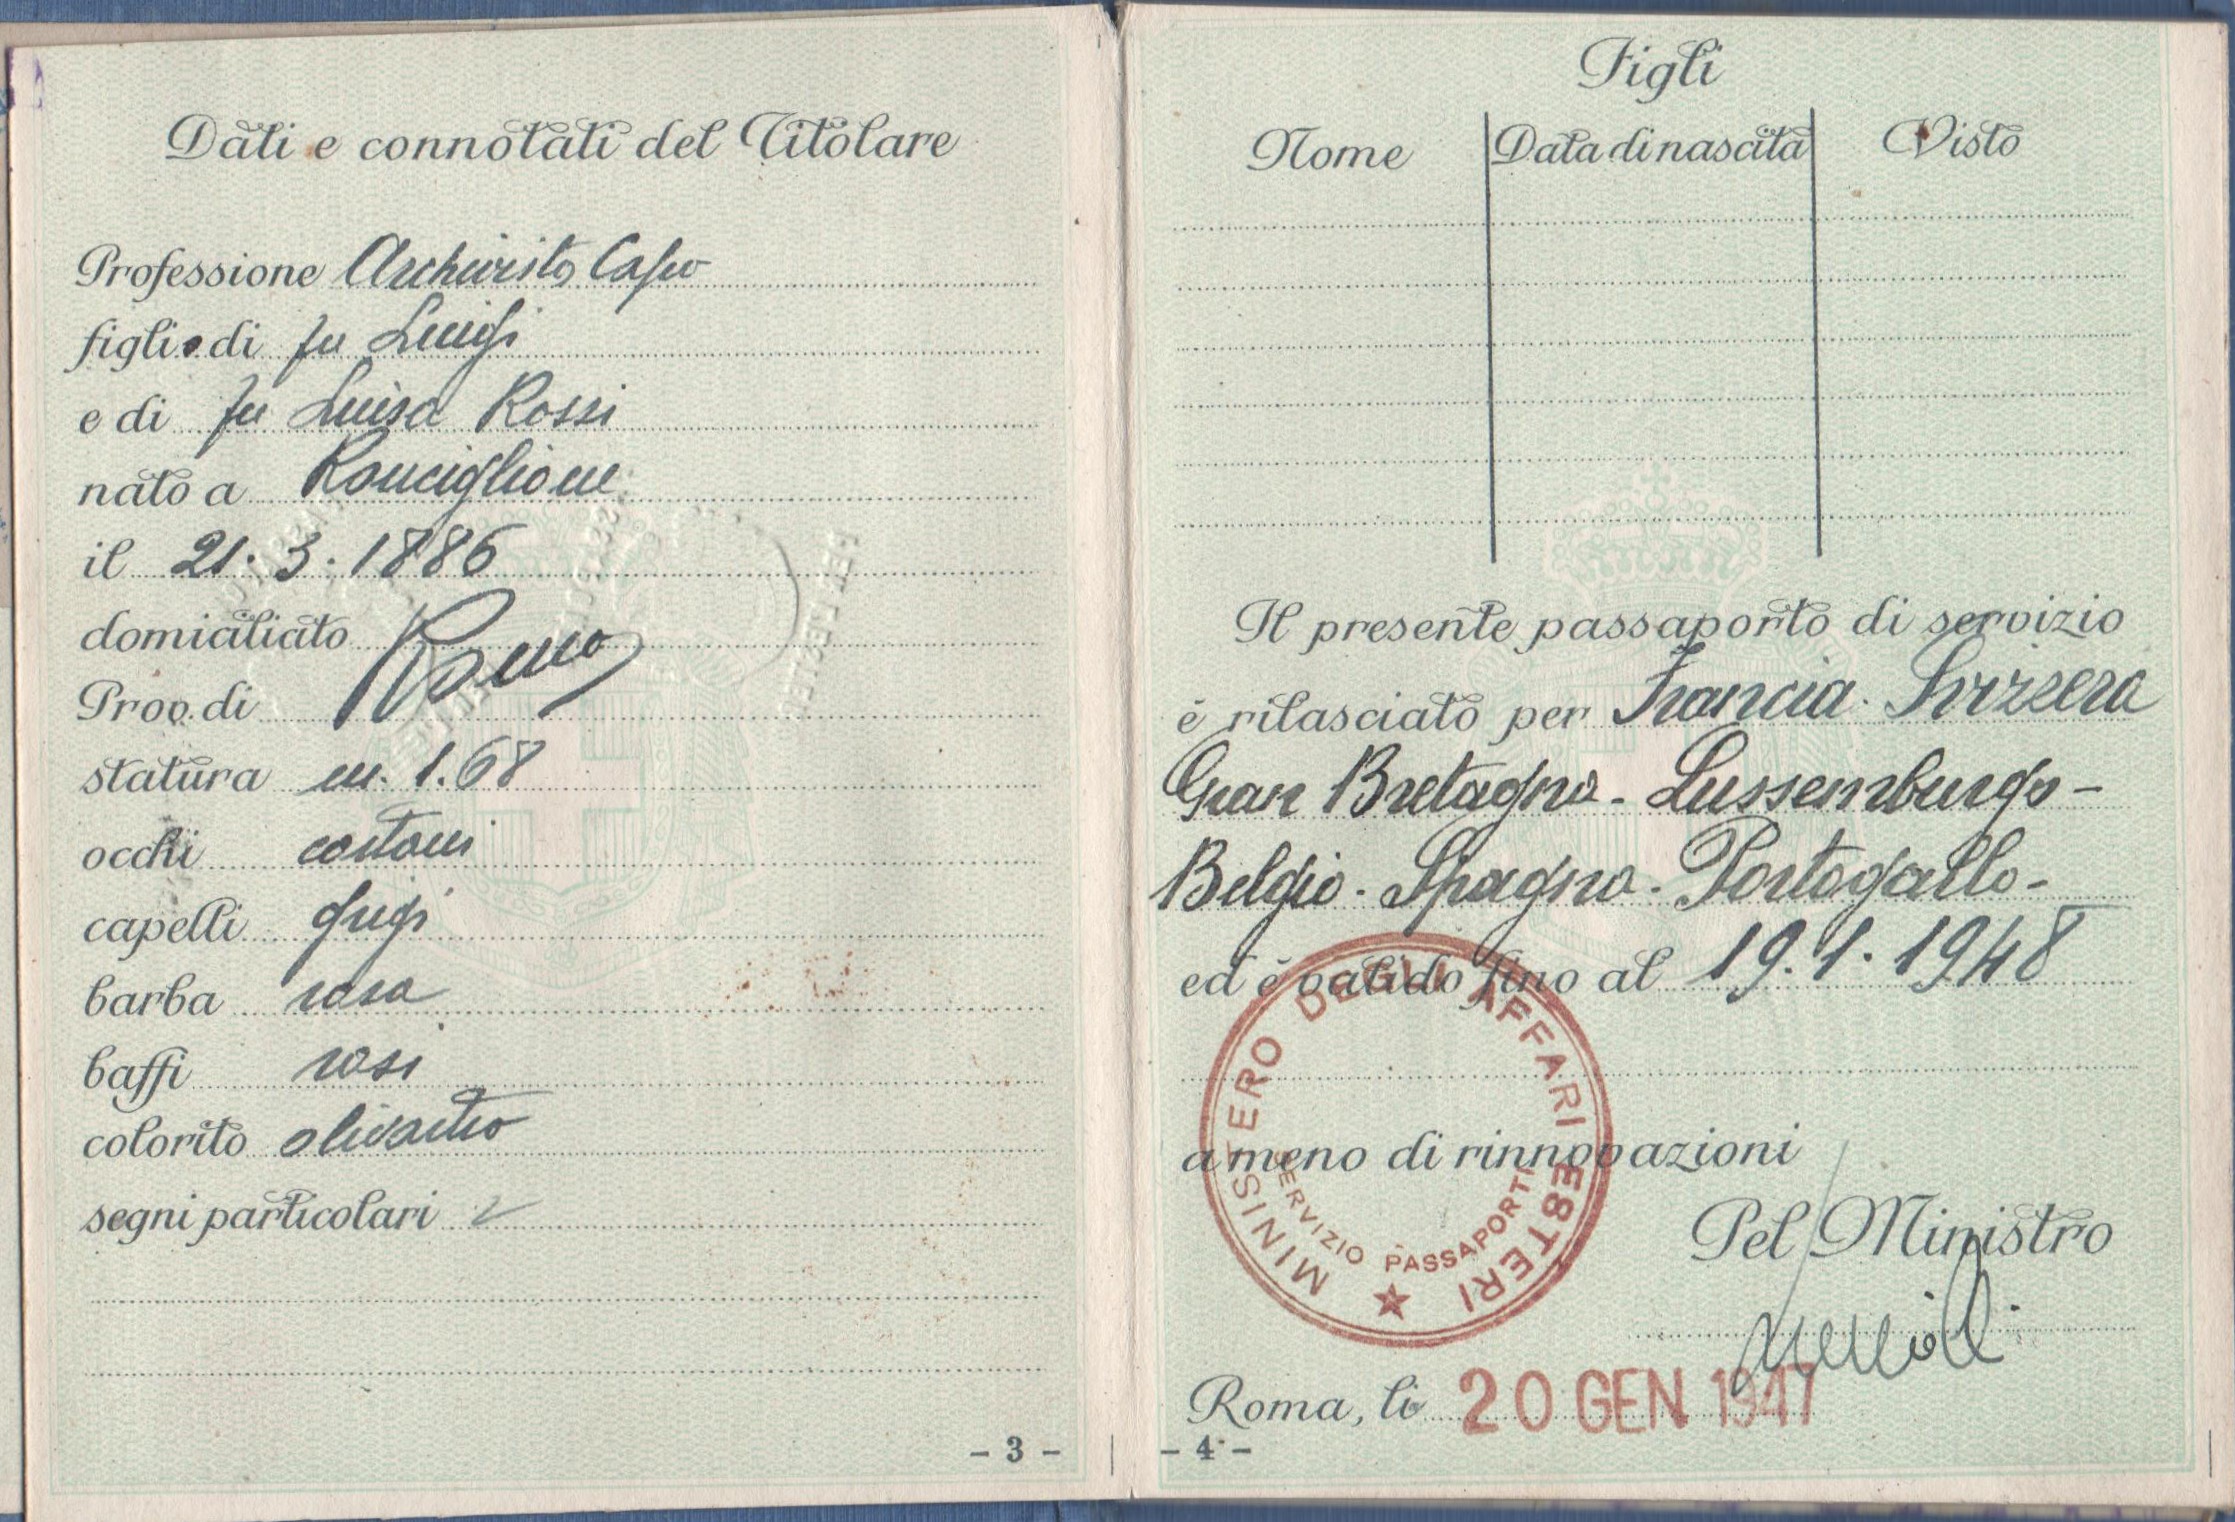 Dati e connotati del Titolare
Professione Archivista Capo
figlio di fu Luigi
e di fu Luisa Rossi
nato a Ronciglione
il 21. 3. 1886
domiciliato
Prov. di Roma
statura m. 1.68
occhi castani
capelli grigi
barba rasa
baffi rasi
colorito olivastro
segni particolari
- 3 -
Figli
Nome Data di nascita Visto
Il presente passaporto di servizio
è rilasciato per Francia - Svizzera
Gran Bretagna - Lussemburgo -
Belgio - Spagna - Portogallo -
ed è valido fino al 19.1.1948
a meno di rinnovazioni
MINISTERO DEGLI AFFARI ESTERI
SERVIZIO PASSAPORTI
Pel Ministro
Roma, li 20 GEN 1947
- 4 -